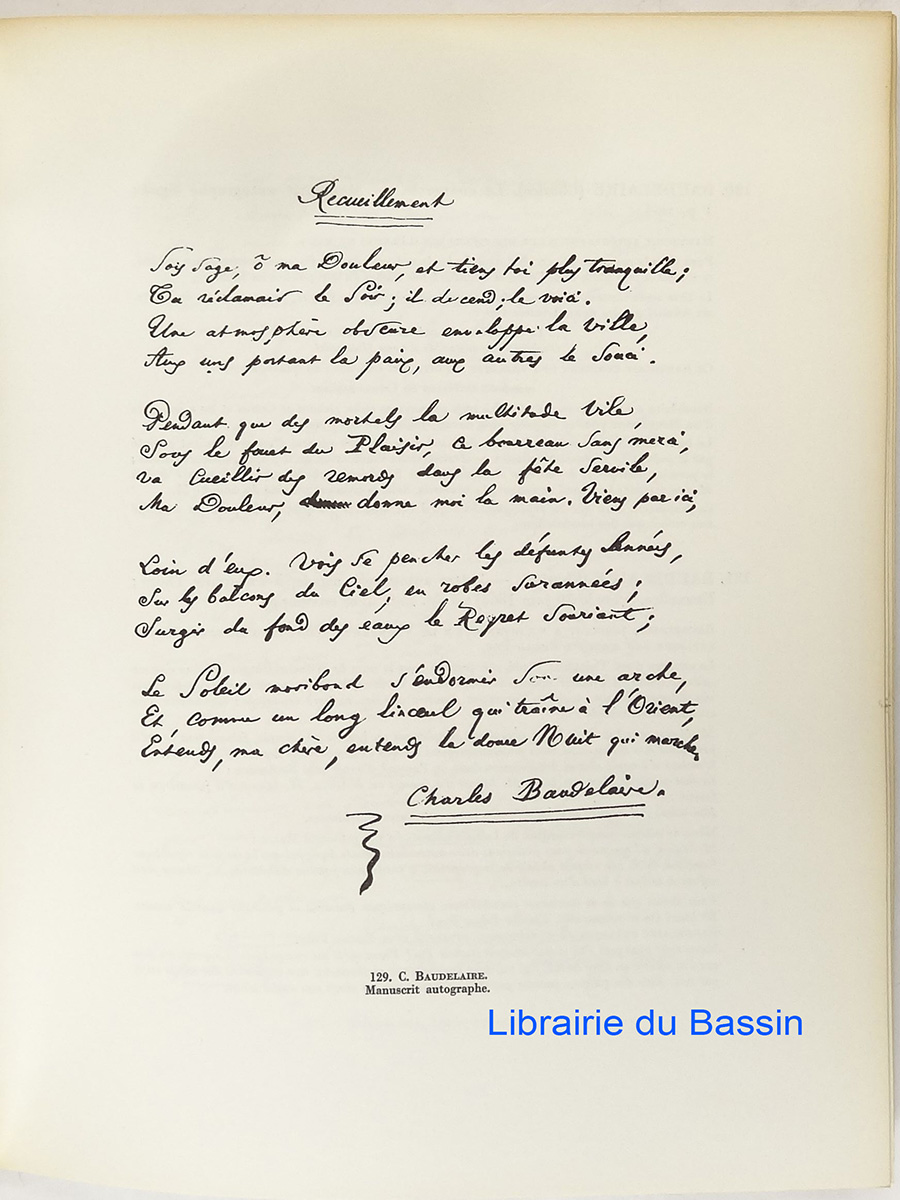 Recueillement
Sois sage, ô ma Douleur, et tiens toi plus tranquille;
Tu réclamais le Soir; il descend; le voici.
Une atmosphère obscure enveloppe la ville,
Aux uns portant la paix, aux autres le souci.
Pendant que des mortels la multitude vile,
Sous le fouet du Plaisir, ce bourreau sans merci,
Va cueillir des remords dans la fête servile,
Ma Douleur, donne moi la main. Viens par ici,
Loin d'eux. Vois se pencher les défuntes Années,
Sur les balcons du Ciel, en robes surannées;
Surgir du fond des eaux le Regret souriant;
Le Soleil moribond s'endormir une arche,
Et, comme un long linceul qui traîne à l'Orient,
Entends, ma chère, entends la douce Nuit qui marche.
Charles Baudelaire.
129. C. BAUDELAIRE.
Manuscrit autographe.
Librairie du Bassin